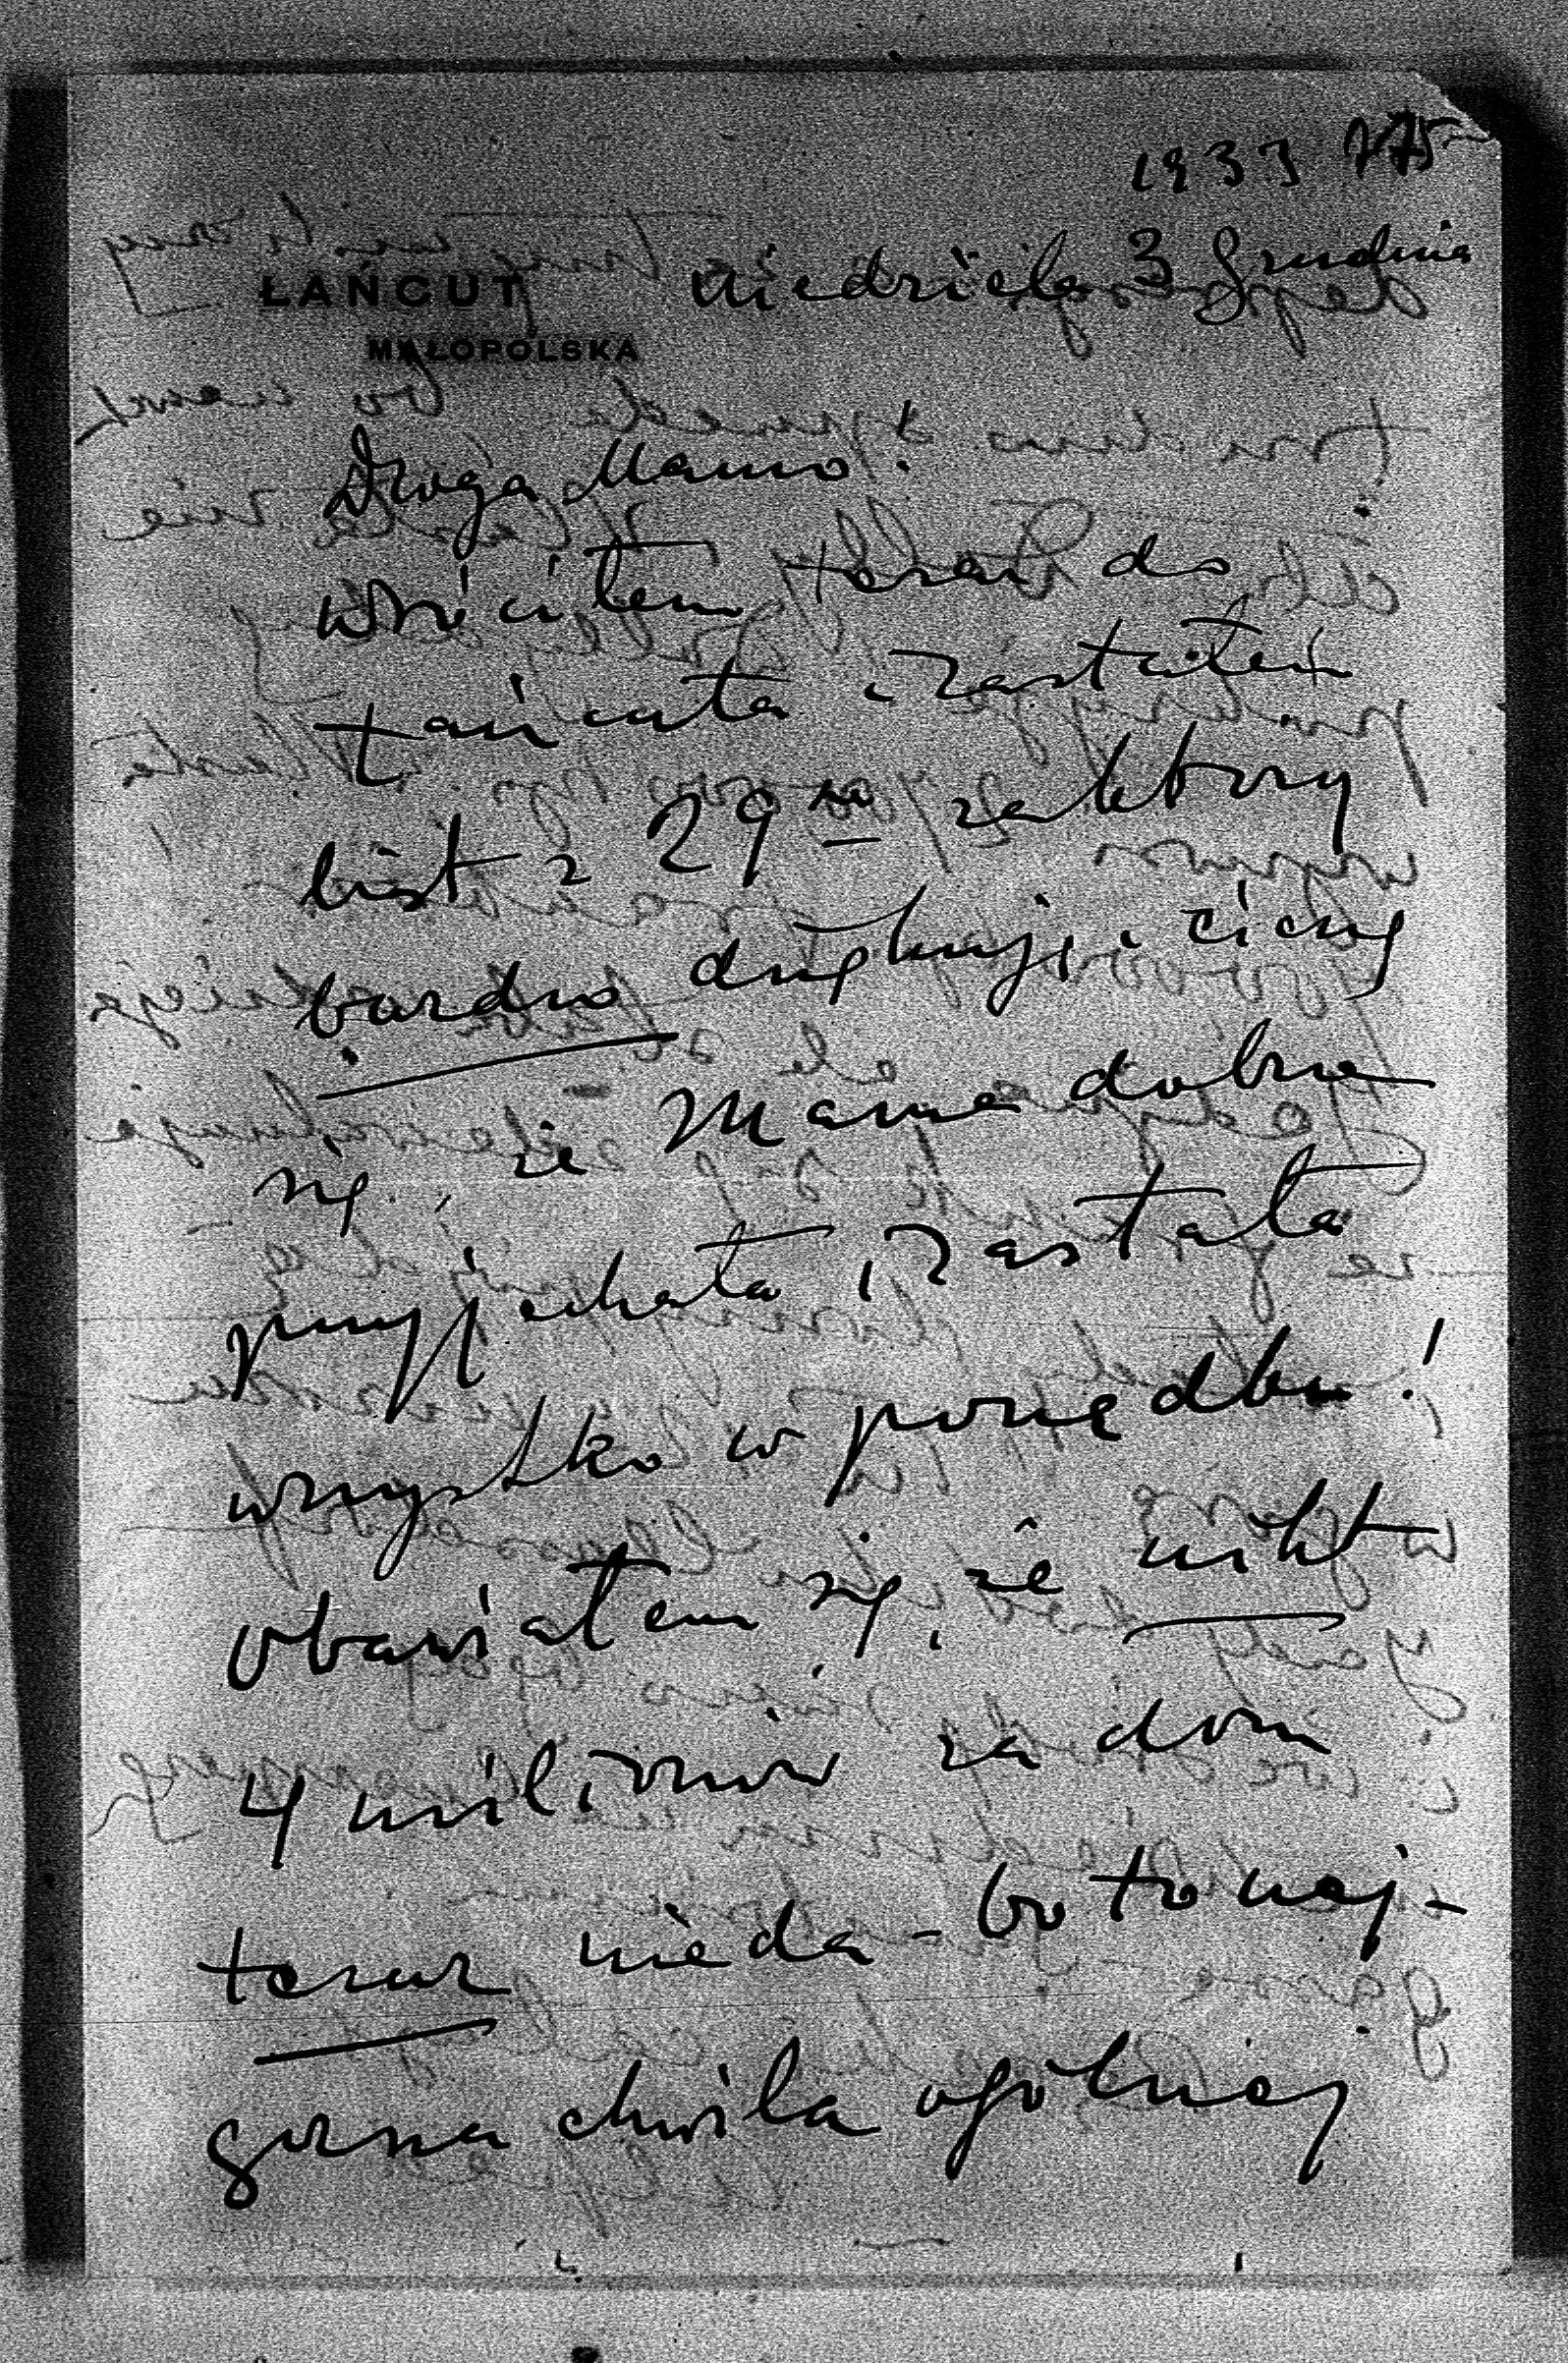 1933
ŁAŃCUT niedziela 3 Grudnia
MAŁOPOLSKA
Droga Mamo!
wróciłem teraz do
Łańcuta i zastałem
list z 29go za który
bardzo dziękuję i cieszę
się, że Mama dobrze
przyjechała i zastała
wszystko w porządku!
obawiałem się, że nikt
4 milionów za dom
teraz nie da - bo to naj-
gorsza chwila ogólnej